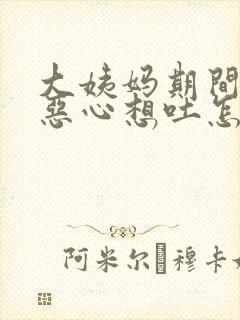 大姨妈期间
恶心想吐怎
阿米尔 穆卡